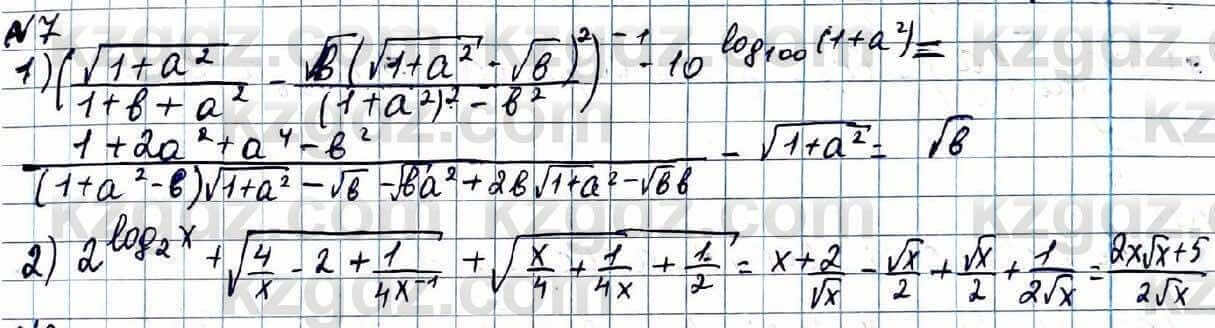 №7
1) (√(1+a²)/(1+b+a²) - √b(√(1+a²) - √b)²/((1+a²)² - b²))⁻¹ - 10^(log₁₀₀(1+a²)) =
(1+2a²+a⁴-b²)/((1+a²-b)√(1+a²) - √b - √b a² + 2b√(1+a²) - √b b) - √(1+a²) = √b
2) 2^(log₂x) + √(4/x - 2 + 1/(4x⁻¹)) + √(x/4 + 1/(4x) + 1/2) = x + 2/√x - √x/2 + √x/2 + 1/(2√x) = (2x√x+5)/(2√x)